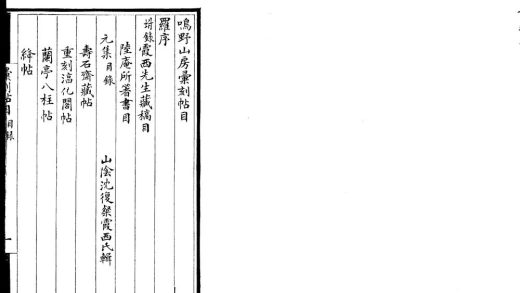 鳴野山房彙刻帖目
羅序
坿錄霞西先生藏稿目
陸庵所著書目
元集目錄
山陰沈復粲霞西氏輯
壽石齋藏帖
重刻淳化閣帖
蘭亭八柱帖
絳帖
彙刻帖目 目錄 一